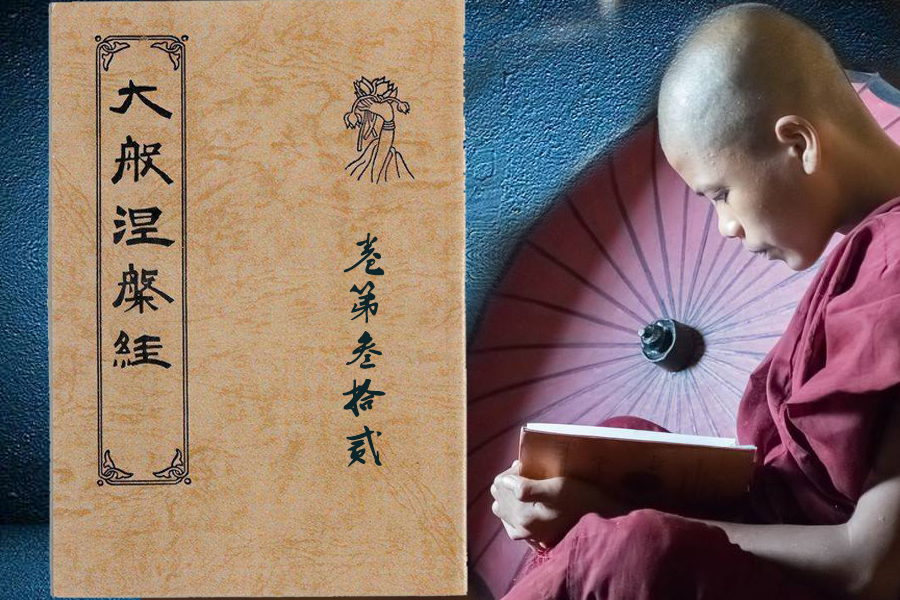 大般涅槃経
卷第叁拾貳